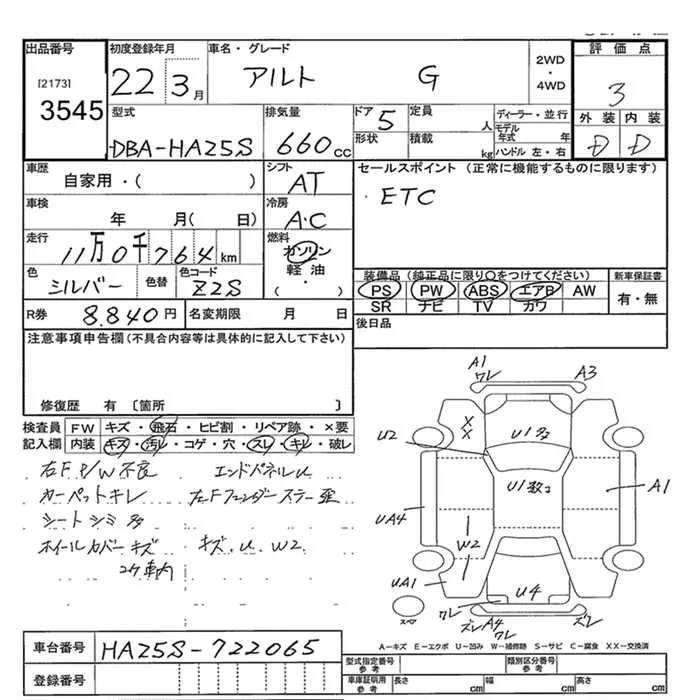 出品番号
[2173]
3545
初度登録年月
22 3月
車名・グレード
アルト G
2WD
・
4WD
評価点
3
外装 内装
D D
型式
DBA-HA25S
排気量
660cc
ドア 5
形状
定員
人
積載
kg
ディーラー・並行
モデル年式 年
ハンドル 左・右
車歴
自家用・( )
シフト
AT
セールスポイント (正常に機能するものに限ります)
・ETC
車検
年 月( 日)
冷房
A・C
走行
11万0千764km
燃料
ガソリン
軽油
・
( )
色
シルバー
色替
色コード
Z2S
装備品(純正品に限り○をつけてください)
PS PW ABS エアB AW
SR ナビ TV カワ
新車保証書
有・無
R券 8,840円
名変期限 月 日
後日品
注意事項申告欄(不具合内容等は具体的に記入して下さい)
修復歴 有 〔箇所 〕
検査員記入欄
FW キズ・飛石・ヒビ割・リペア跡・×要
内装 キズ・汚レ・コゲ・穴・スレ・キレ・破レ
右F P/W 不良
エンドパネルU
カーペットキレ
左Fフェンダーステー歪
シートシミ多
ホイールカバーキズ
キズ.U.W2
2ケ車内
A1
ワレ
A3
X
X
U2
U1多
U1数コ
A1
UA4
W2
UA1
U4
ワレ
スペア
ズレA4
ワレ
ズレ
A-キズ E-エクボ U-凹み W-補修跡 S-サビ C-腐食 XX-交換済
車台番号
HA25S-722065
登録番号
型式指定番号
参考
類別区分番号
参考
車庫証明用
参考
長さ cm
幅 cm
高さ cm